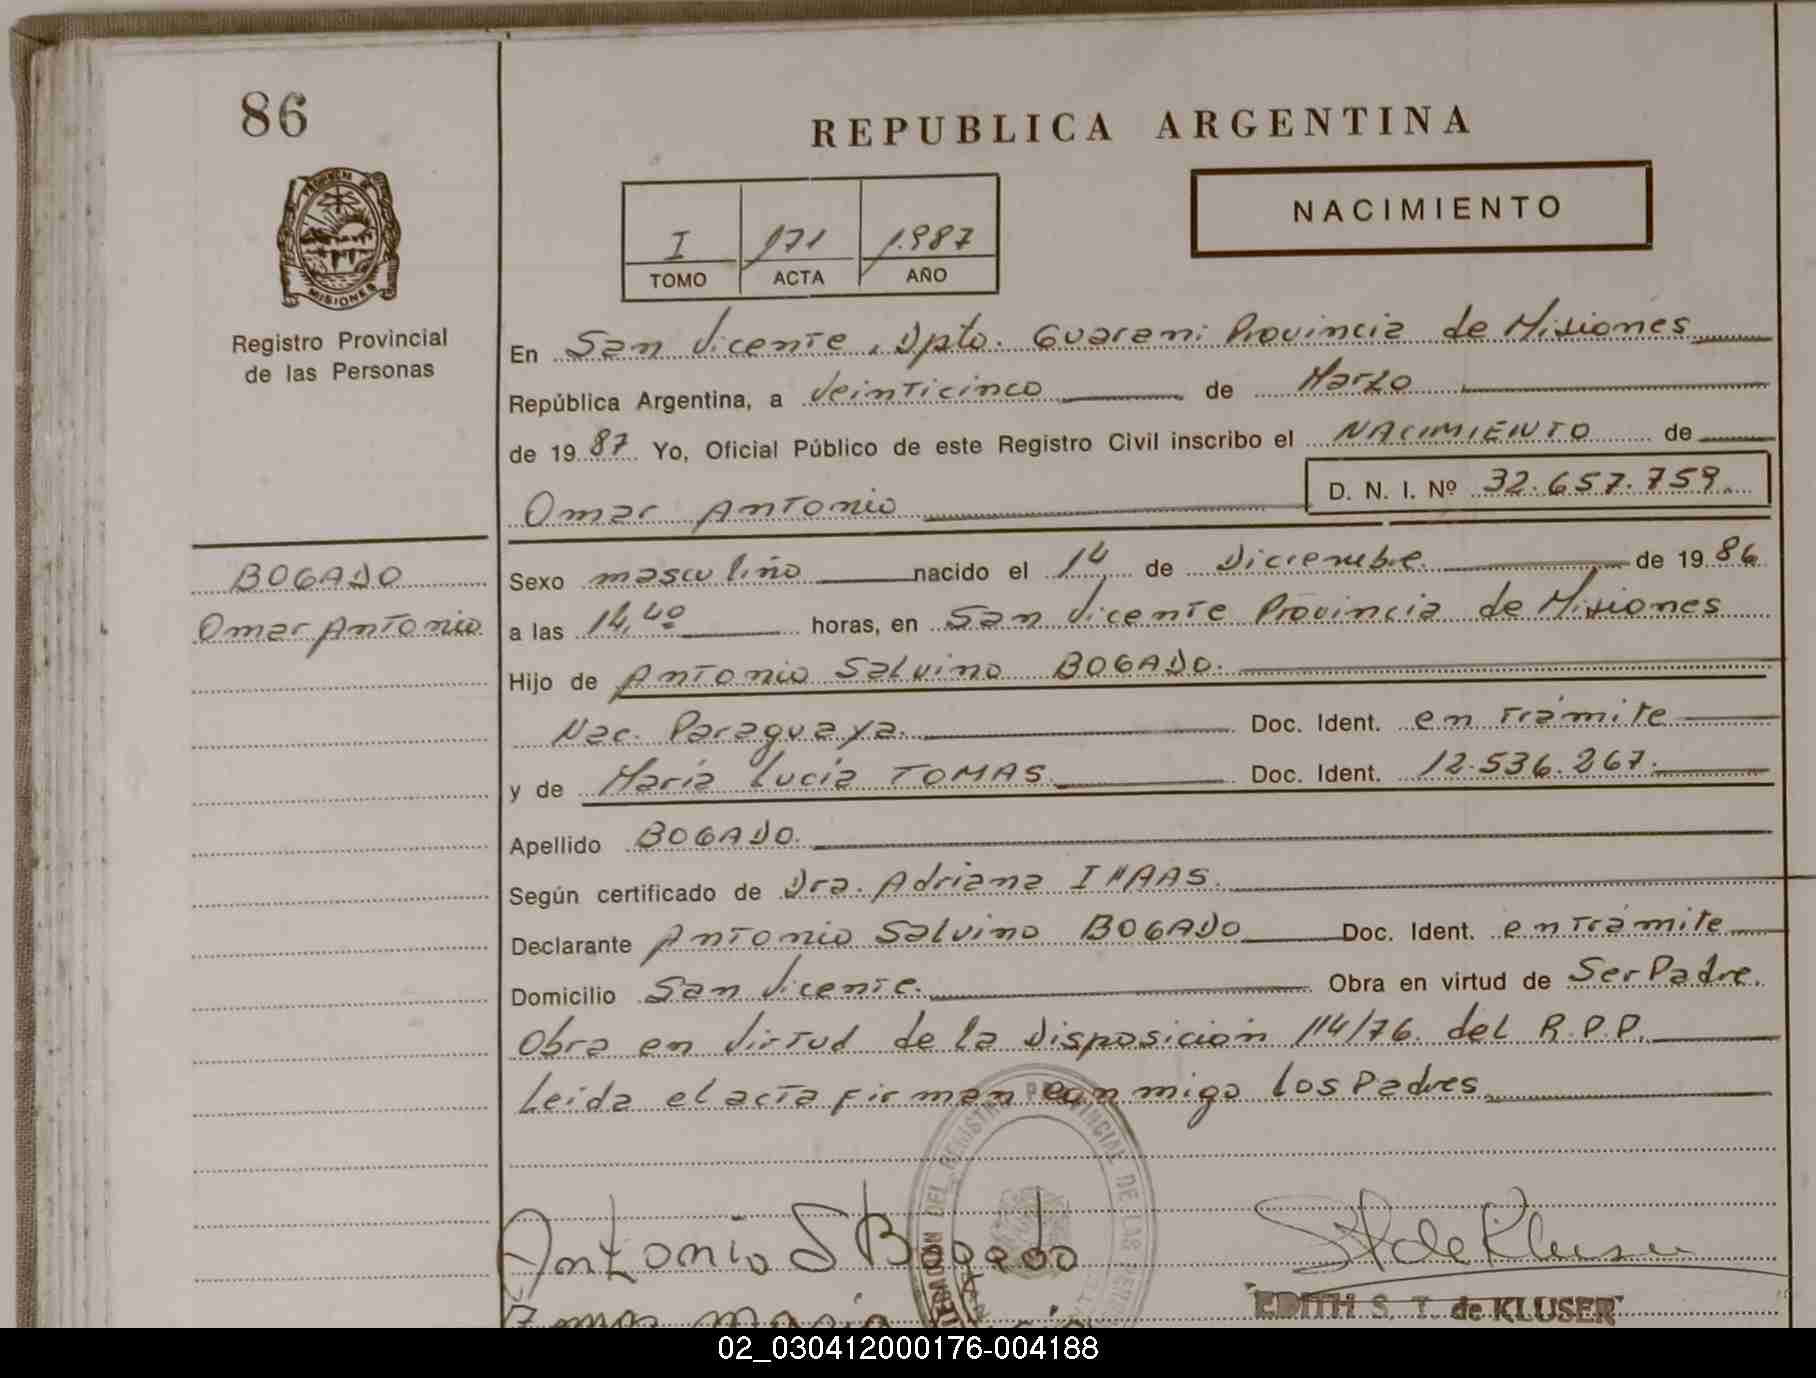 86
REPUBLICA ARGENTINA
NACIMIENTO
I 171 1.987
TOMO ACTA AÑO
PROVINCIA DE MISIONES
Registro Provincial
de las Personas
En San Vicente, Dpto. Guarani Provincia de Misiones
República Argentina, a Veinticinco de Marzo
de 19 87 Yo, Oficial Público de este Registro Civil inscribo el NACIMIENTO de
Omar Antonio D. N. I. Nº 32.657.759.
BOGADO
Omar Antonio
Sexo masculino nacido el 14 de Diciembre de 19 86
a las 14,40 horas, en San Vicente Provincia de Misiones
Hijo de Antonio Salvino BOGADO.
Nac. Paraguaya. Doc. Ident. en trámite
y de María Lucía TOMAS Doc. Ident. 12.536.267.
Apellido BOGADO.
Según certificado de Dra. Adriana
Declarante Antonio Salvino BOGADO Doc. Ident. en trámite
Domicilio San Vicente. Obra en virtud de Ser Padre.
Obra en virtud de la Disposición 114/76. del R.P.P.
Leida el acta firman conmigo los Padres
Antonio S Bogado
EDITH S. T. de KLUSER
02_030412000176-004188